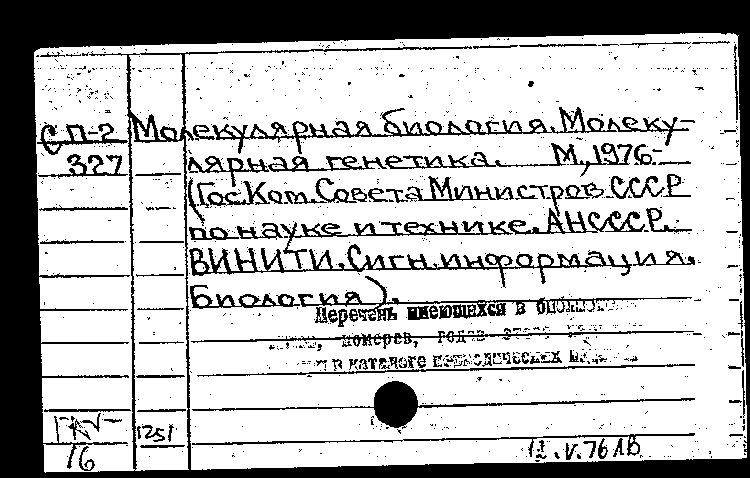 СП-2 Молекулярная биология. Молеку-
327 лярная генетика. М., 1976-
(Гос. Ком. Совета Министров СССР
по науке и технике. АНСССР.
ВИНИТИ. Сигн. информация.
Биология).
Перечень имеющихся в
номеров,
в каталоге периодических
1251
16
12.V.76 ЛВ